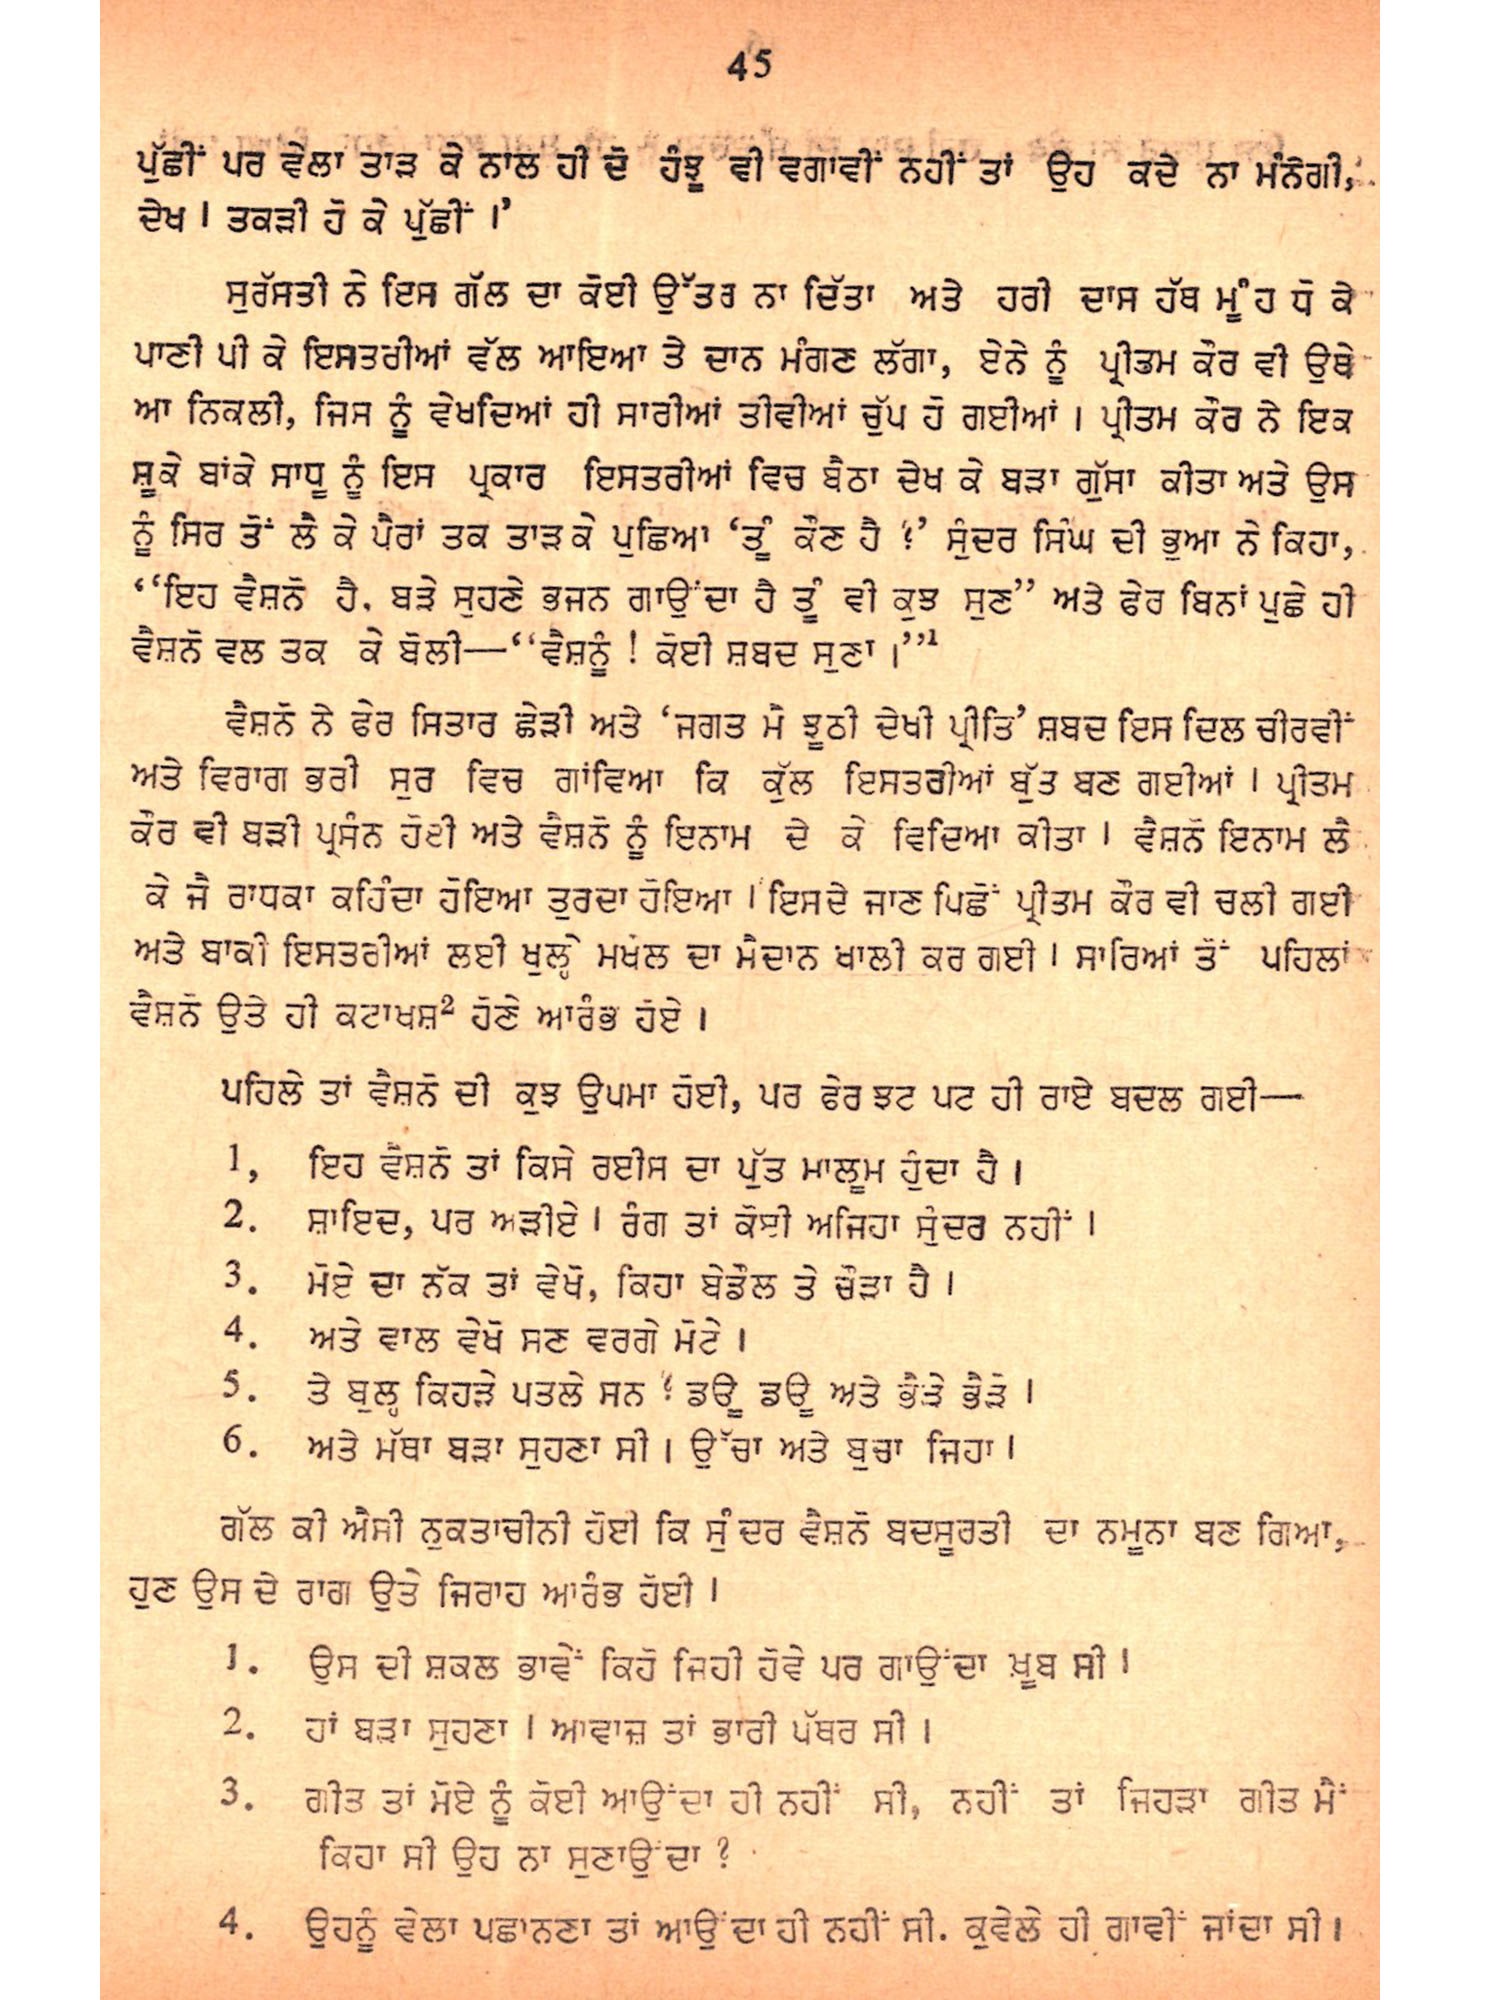 45
ਪੁੱਛੀਂ ਪਰ ਵੇਲਾ ਤਾੜ ਕੇ ਨਾਲ ਹੀ ਦੋ ਹੰਝੂ ਵੀ ਵਗਾਵੀਂ ਨਹੀਂ ਤਾਂ ਉਹ ਕਦੇ ਨਾ ਮੰਨੇਗੀ,
ਦੇਖ । ਤਕੜੀ ਹੋ ਕੇ ਪੁੱਛੀਂ ।’
ਸੁਰੱਸਤੀ ਨੇ ਇਸ ਗੱਲ ਦਾ ਕੋਈ ਉੱਤਰ ਨਾ ਦਿੱਤਾ ਅਤੇ ਹਰੀ ਦਾਸ ਹੱਥ ਮੂੰਹ ਧੋ ਕੇ
ਪਾਣੀ ਪੀ ਕੇ ਇਸਤਰੀਆਂ ਵੱਲ ਆਇਆ ਤੇ ਦਾਨ ਮੰਗਣ ਲੱਗਾ, ਏਨੇ ਨੂੰ ਪ੍ਰੀਤਮ ਕੌਰ ਵੀ ਉਥੇ
ਆ ਨਿਕਲੀ, ਜਿਸ ਨੂੰ ਵੇਖਦਿਆਂ ਹੀ ਸਾਰੀਆਂ ਤੀਵੀਆਂ ਚੁੱਪ ਹੋ ਗਈਆਂ । ਪ੍ਰੀਤਮ ਕੌਰ ਨੇ ਇਕ
ਸ਼ੂਕੇ ਬਾਂਕੇ ਸਾਧੂ ਨੂੰ ਇਸ ਪ੍ਰਕਾਰ ਇਸਤਰੀਆਂ ਵਿਚ ਬੈਠਾ ਦੇਖ ਕੇ ਬੜਾ ਗੁੱਸਾ ਕੀਤਾ ਅਤੇ ਉਸ
ਨੂੰ ਸਿਰ ਤੋਂ ਲੈ ਕੇ ਪੈਰਾਂ ਤਕ ਤਾੜਕੇ ਪੁਛਿਆ ‘ਤੂੰ ਕੌਣ ਹੈ ?’ ਸੁੰਦਰ ਸਿੰਘ ਦੀ ਭੂਆ ਨੇ ਕਿਹਾ,
“ਇਹ ਵੈਸ਼ਨੋ ਹੈ. ਬੜੇ ਸੁਹਣੇ ਭਜਨ ਗਾਉਂਦਾ ਹੈ ਤੂੰ ਵੀ ਕੁਝ ਸੁਣ” ਅਤੇ ਫੇਰ ਬਿਨਾਂ ਪੁਛੇ ਹੀ
ਵੈਸ਼ਨੋ ਵਲ ਤਕ ਕੇ ਬੋਲੀ—“ਵੈਸ਼ਨੂੰ ! ਕੋਈ ਸ਼ਬਦ ਸੁਣਾ ।”1
ਵੈਸ਼ਨੋ ਨੇ ਫੇਰ ਸਿਤਾਰ ਛੇੜੀ ਅਤੇ ‘ਜਗਤ ਮੈ ਝੂਠੀ ਦੇਖੀ ਪ੍ਰੀਤਿ’ ਸ਼ਬਦ ਇਸ ਦਿਲ ਚੀਰਵੀਂ
ਅਤੇ ਵਿਰਾਗ ਭਰੀ ਸੁਰ ਵਿਚ ਗਾਂਵਿਆ ਕਿ ਕੁੱਲ ਇਸਤਰੀਆਂ ਬੁੱਤ ਬਣ ਗਈਆਂ । ਪ੍ਰੀਤਮ
ਕੌਰ ਵੀ ਬੜੀ ਪ੍ਰਸੰਨ ਹੋਈ ਅਤੇ ਵੈਸ਼ਨੋ ਨੂੰ ਇਨਾਮ ਦੇ ਕੇ ਵਿਦਿਆ ਕੀਤਾ । ਵੈਸ਼ਨੋ ਇਨਾਮ ਲੈ
ਕੇ ਜੈ ਰਾਧਕਾ ਕਹਿੰਦਾ ਹੋਇਆ ਤੁਰਦਾ ਹੋਇਆ । ਇਸਦੇ ਜਾਣ ਪਿਛੋਂ ਪ੍ਰੀਤਮ ਕੌਰ ਵੀ ਚਲੀ ਗਈ
ਅਤੇ ਬਾਕੀ ਇਸਤਰੀਆਂ ਲਈ ਖੁਲ੍ਹੇ ਮਖੌਲ ਦਾ ਮੈਦਾਨ ਖਾਲੀ ਕਰ ਗਈ । ਸਾਰਿਆਂ ਤੋਂ ਪਹਿਲਾਂ
ਵੈਸ਼ਨੋ ਉਤੇ ਹੀ ਕਟਾਖਸ਼2 ਹੋਣੇ ਆਰੰਭ ਹੋਏ ।
ਪਹਿਲੇ ਤਾਂ ਵੈਸ਼ਨੋ ਦੀ ਕੁਝ ਉਪਮਾ ਹੋਈ, ਪਰ ਫੇਰ ਝਟ ਪਟ ਹੀ ਰਾਏ ਬਦਲ ਗਈ—
1, ਇਹ ਵੈਸ਼ਨੋ ਤਾਂ ਕਿਸੇ ਰਈਸ ਦਾ ਪੁੱਤ ਮਾਲੂਮ ਹੁੰਦਾ ਹੈ ।
2. ਸ਼ਾਇਦ, ਪਰ ਅੜੀਏ । ਰੰਗ ਤਾਂ ਕੋਈ ਅਜਿਹਾ ਸੁੰਦਰ ਨਹੀਂ ।
3. ਮੋਏ ਦਾ ਨੱਕ ਤਾਂ ਵੇਖੋ, ਕਿਹਾ ਬੇਡੌਲ ਤੇ ਚੌੜਾ ਹੈ ।
4. ਅਤੇ ਵਾਲ ਵੇਖੋ ਸਣ ਵਰਗੇ ਮੋਟੇ ।
5. ਤੇ ਬੁਲ੍ਹ ਕਿਹੜੇ ਪਤਲੇ ਸਨ ? ਡਊ ਡਊ ਅਤੇ ਭੈੜੇ ਭੈੜੇ ।
6. ਅਤੇ ਮੱਥਾ ਬੜਾ ਸੁਹਣਾ ਸੀ । ਉੱਚਾ ਅਤੇ ਬੁਚਾ ਜਿਹਾ ।
ਗੱਲ ਕੀ ਐਸੀ ਨੁਕਤਾਚੀਨੀ ਹੋਈ ਕਿ ਸੁੰਦਰ ਵੈਸ਼ਨੋ ਬਦਸੂਰਤੀ ਦਾ ਨਮੂਨਾ ਬਣ ਗਿਆ,
ਹੁਣ ਉਸ ਦੇ ਰਾਗ ਉਤੇ ਜਿਰਾਹ ਆਰੰਭ ਹੋਈ ।
1. ਉਸ ਦੀ ਸ਼ਕਲ ਭਾਵੇਂ ਕਿਹੋ ਜਿਹੀ ਹੋਵੇ ਪਰ ਗਾਉਂਦਾ ਖ਼ੂਬ ਸੀ !
2. ਹਾਂ ਬੜਾ ਸੁਹਣਾ । ਆਵਾਜ਼ ਤਾਂ ਭਾਰੀ ਪੱਥਰ ਸੀ ।
3. ਗੀਤ ਤਾਂ ਮੋਏ ਨੂੰ ਕੋਈ ਆਉਂਦਾ ਹੀ ਨਹੀਂ ਸੀ, ਨਹੀਂ ਤਾਂ ਜਿਹੜਾ ਗੀਤ ਮੈਂ
ਕਿਹਾ ਸੀ ਉਹ ਨਾ ਸੁਣਾਉਂਦਾ ?
4. ਉਹਨੂੰ ਵੇਲਾ ਪਛਾਨਣਾ ਤਾਂ ਆਉਂਦਾ ਹੀ ਨਹੀਂ ਸੀ. ਕੁਵੇਲੇ ਹੀ ਗਾਵੀਂ ਜਾਂਦਾ ਸੀ ।